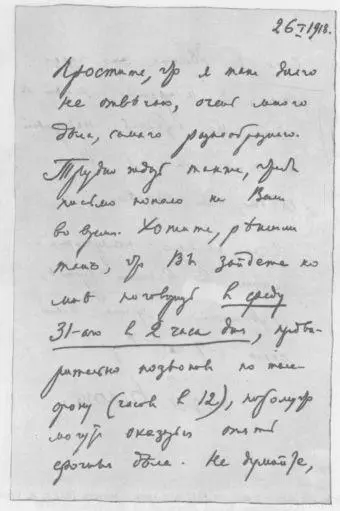 26 I 1918.
Простите, что я так долго
не отвѣчаю, очень много
дѣла, самаго разнообразного.
Трудно ждать также, чтоб
письмо попало к Вам
во время. Хотите, рѣшим
такъ, что Вы зайдете ко
мнѣ поговорить в среду
31-аго в 2 часа дня, предва-
рительно позвонив по теле-
фону (часов в 12), потому что
могут оказаться опять
срочныя дѣла. Не думайте,